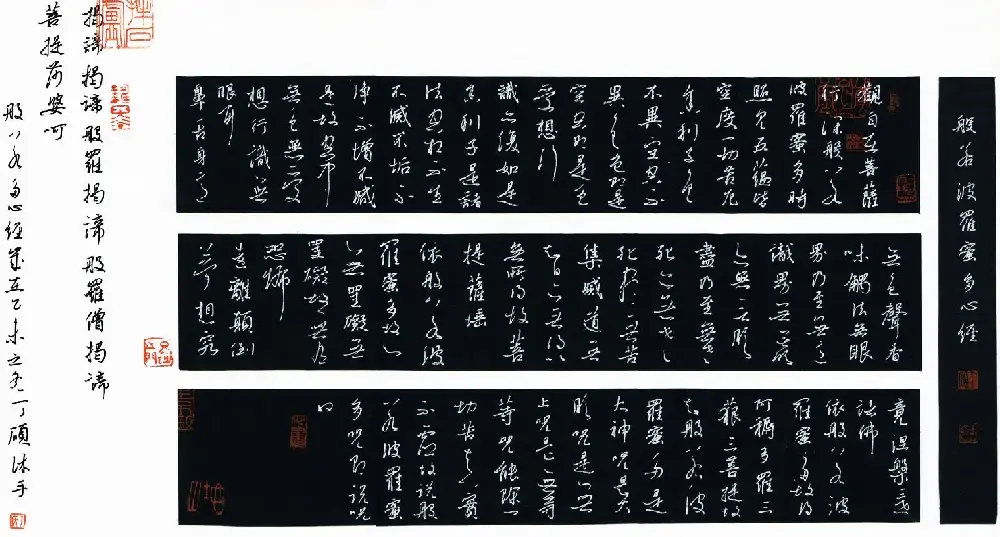 般若波羅蜜多心經
觀自在菩薩
行深般若
波羅蜜多時
照見五蘊皆
空度一切苦厄
舍利子色
不異空空不
異色色即是
空空即是色
受想行
識亦復如是
舍利子是諸
法空相不生
不滅不垢不
淨不增不減
是故空中
無色無受
想行識無
眼耳
鼻舌身意
無色聲香
味觸法無眼
界乃至無意
識界無無明
亦無無明
盡乃至無老
死亦無老
死盡無苦
集滅道無
智亦無得以
無所得故菩
提薩埵
依般若波
羅蜜多故心
無罣礙無
罣礙故無有
恐怖
遠離顛倒
夢想究
竟涅槃三世
諸佛
依般若波
羅蜜多故得
阿耨多羅三
藐三菩提故
知般若波
羅蜜多是
大神咒是大
明咒是無
上咒是無等
等咒能除一
切苦真實
不虛故說般
若波羅蜜
多咒即說咒
曰
揭諦揭諦般羅揭諦般羅僧揭諦
菩提莎婆呵
般若多心經歲在乙未之冬丁碩沐手